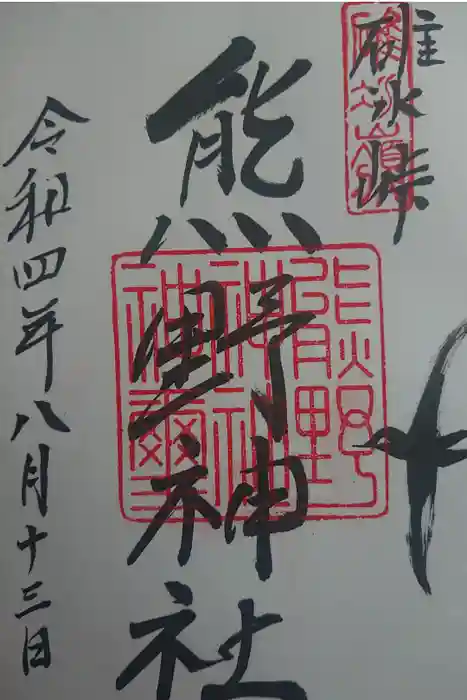 碓氷峠
熊野神社
令和四年八月十三日
碓氷嶺
熊野神社神璽